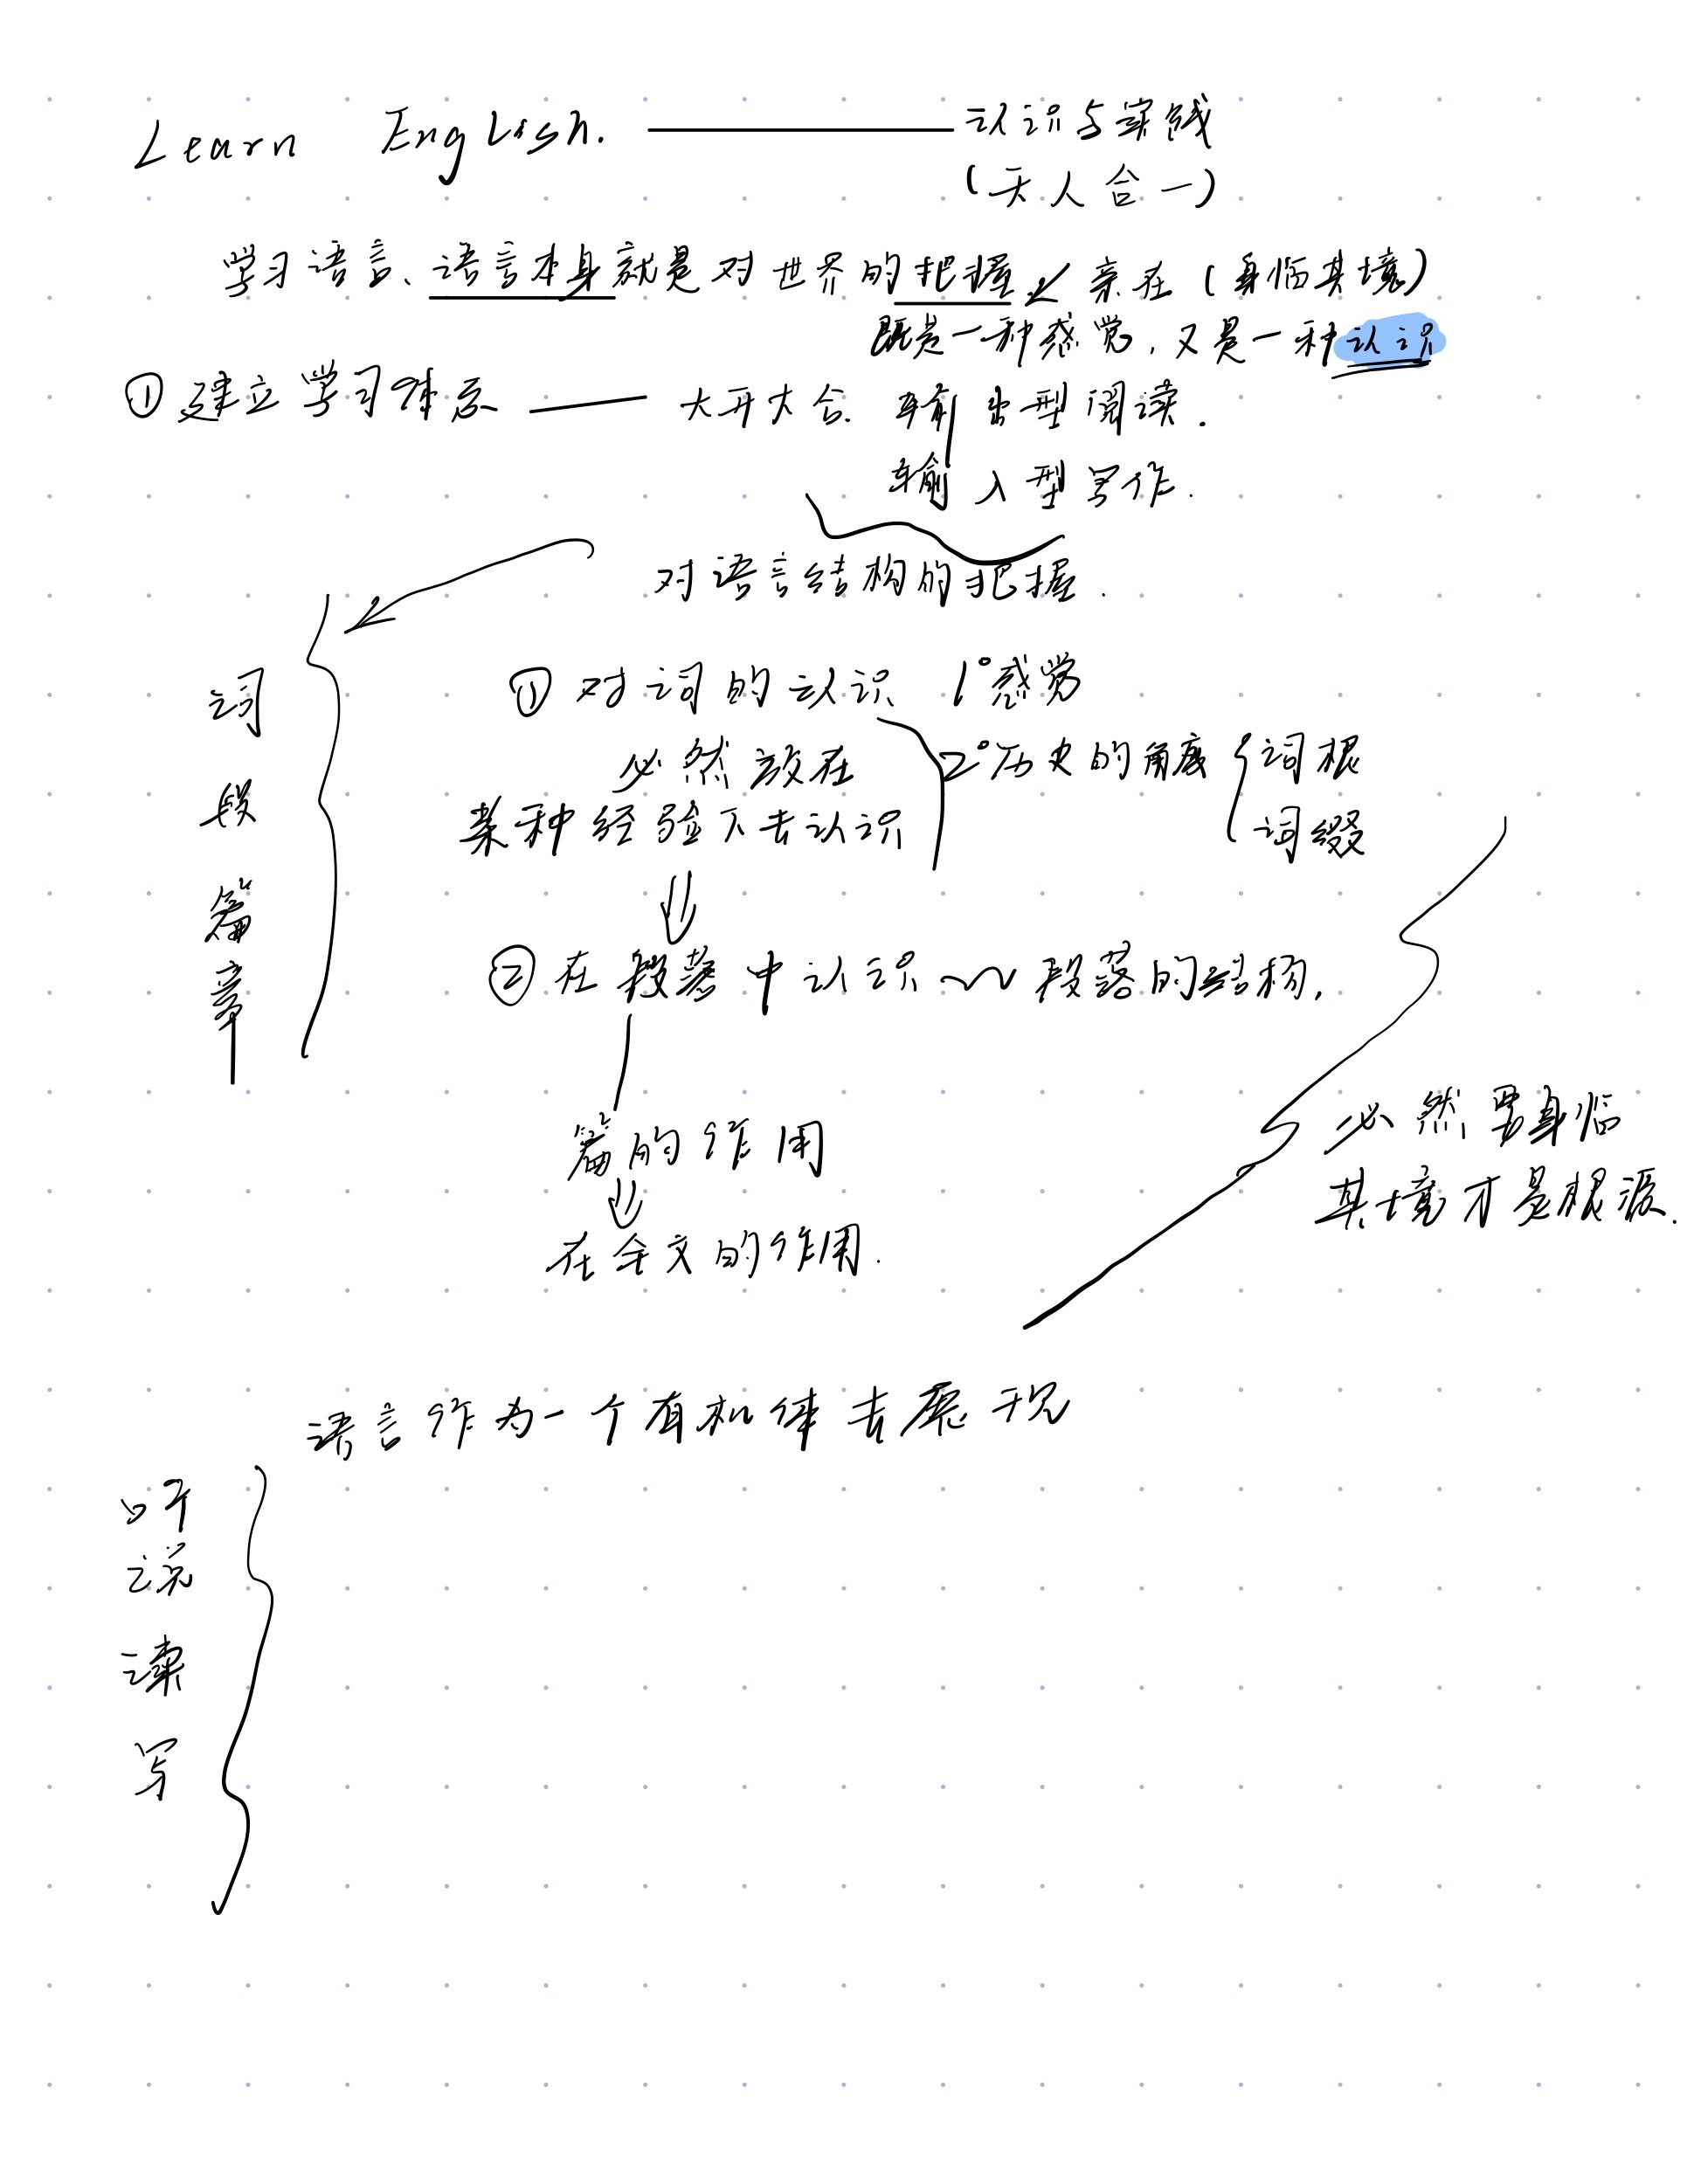 Learn English. —— 认识与实践
(天人合一)
学习语言、语言本身就是对世界的把握 ↙ 亲在(身临其境)
既是一种感觉,又是一种认识
① 建立学习体系 —— 大开大合. 输出型阅读.
输入型写作.
对语言结构的把握.
词
段
篇
章
① 对词的认识 1°感觉
必然放在
某种经验下去认识
2°历史的角度 { 词根
词缀
② 在段落中认识 ~~ 段落的结构.
篇的作用
在全文的作用.
必然要身临
其境才是根源.
语言作为一个有机体去展现
听
说
读
写